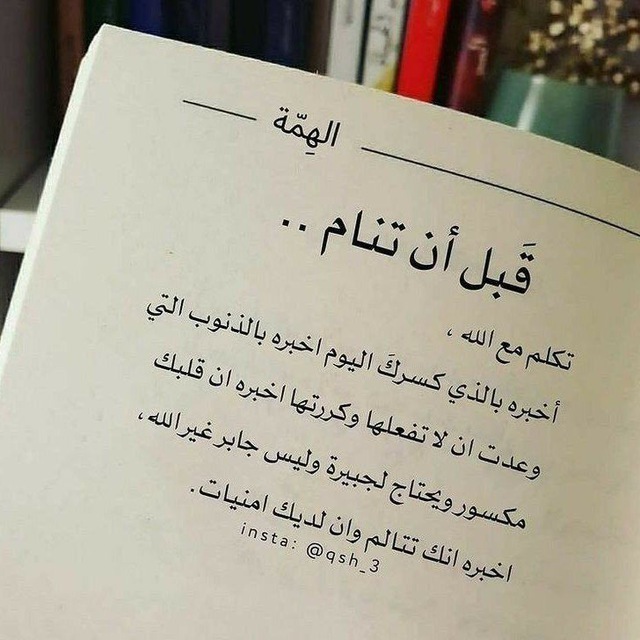 الهِمّة
قَبل أن تنام ..
تكلم مع الله ،
أخبره بالذي كسركَ اليوم اخبره بالذنوب التي
وعدت ان لا تفعلها وكررتها اخبره ان قلبك
مكسور ويحتاج لجبيرة وليس جابر غير الله ،
اخبره انك تتالم وان لديك امنيات.
insta: @qsh_3